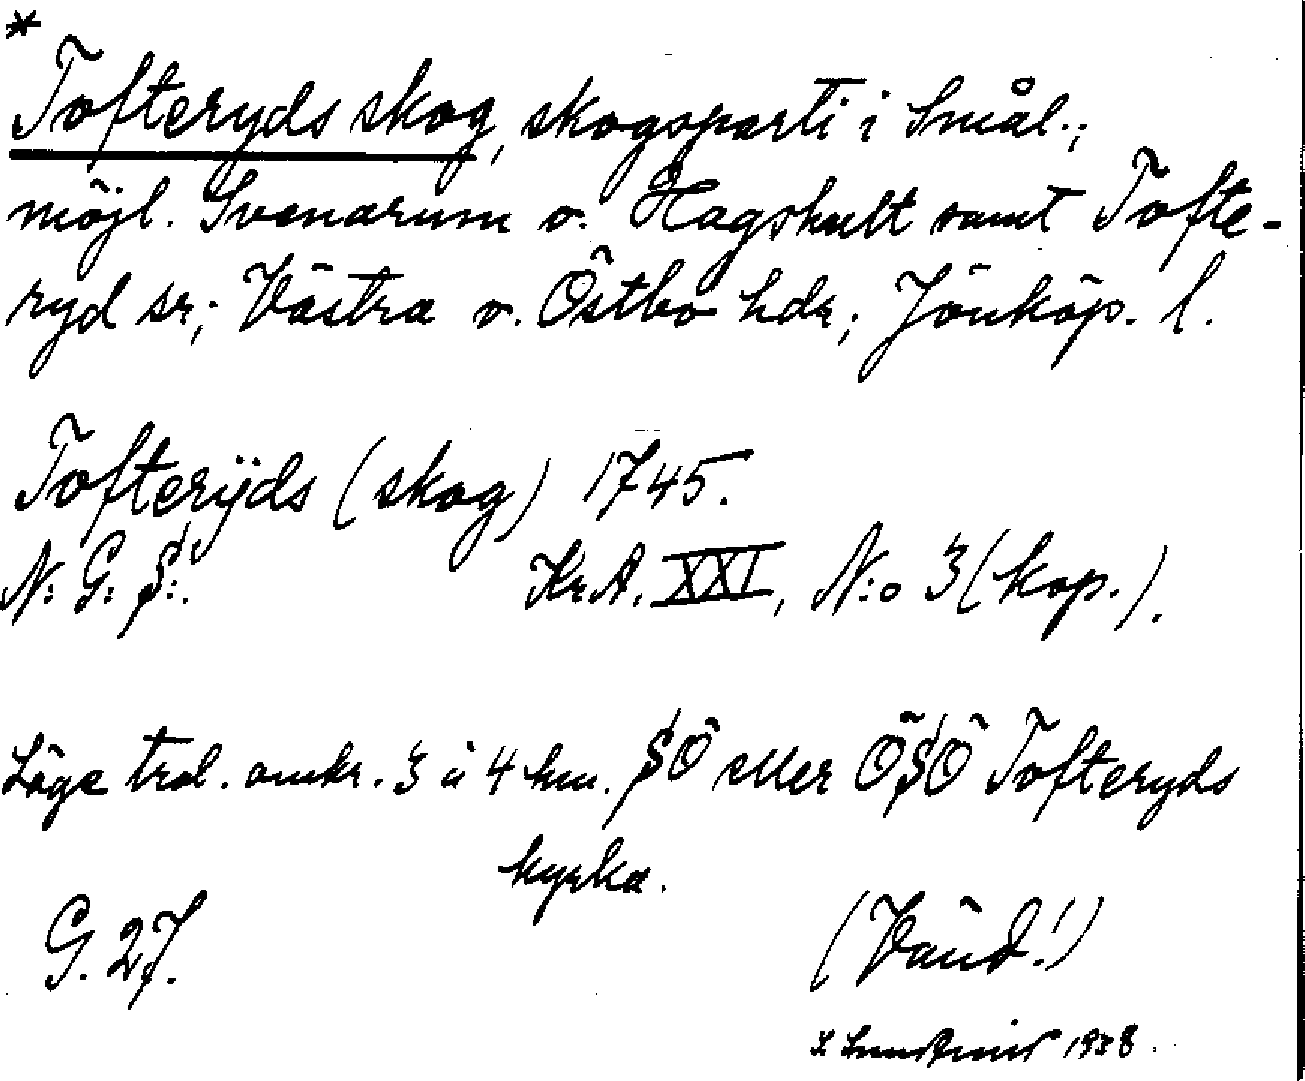 *
Tofteryds skog, skogsparti i Smål.;
möjl. Svenarum o. Hagshult samt Tofte-
ryd sr; Västra o. Östbo hdr; Jönköp. l.
Tofterÿds (skog) 1745.
N: G: S:.
Kr.A. XXI, N:o 3 (kop.).
Läge trol. omkr. 3 à 4 km. SÖ eller ÖSÖ Tofteryds
kyrka.
G. 27.
(Vänd!)
1928.